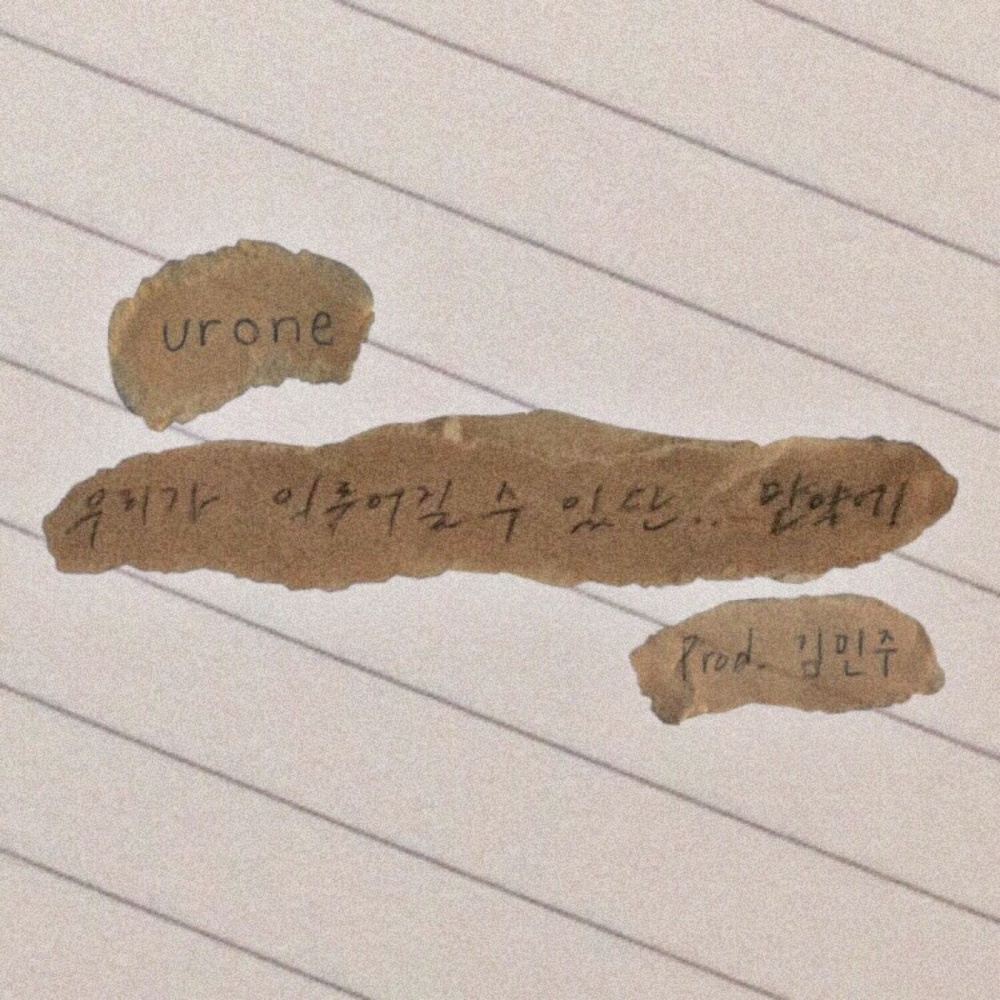 urone
우리가 이루어질 수 있단.. 만약에
Prod. 김민주